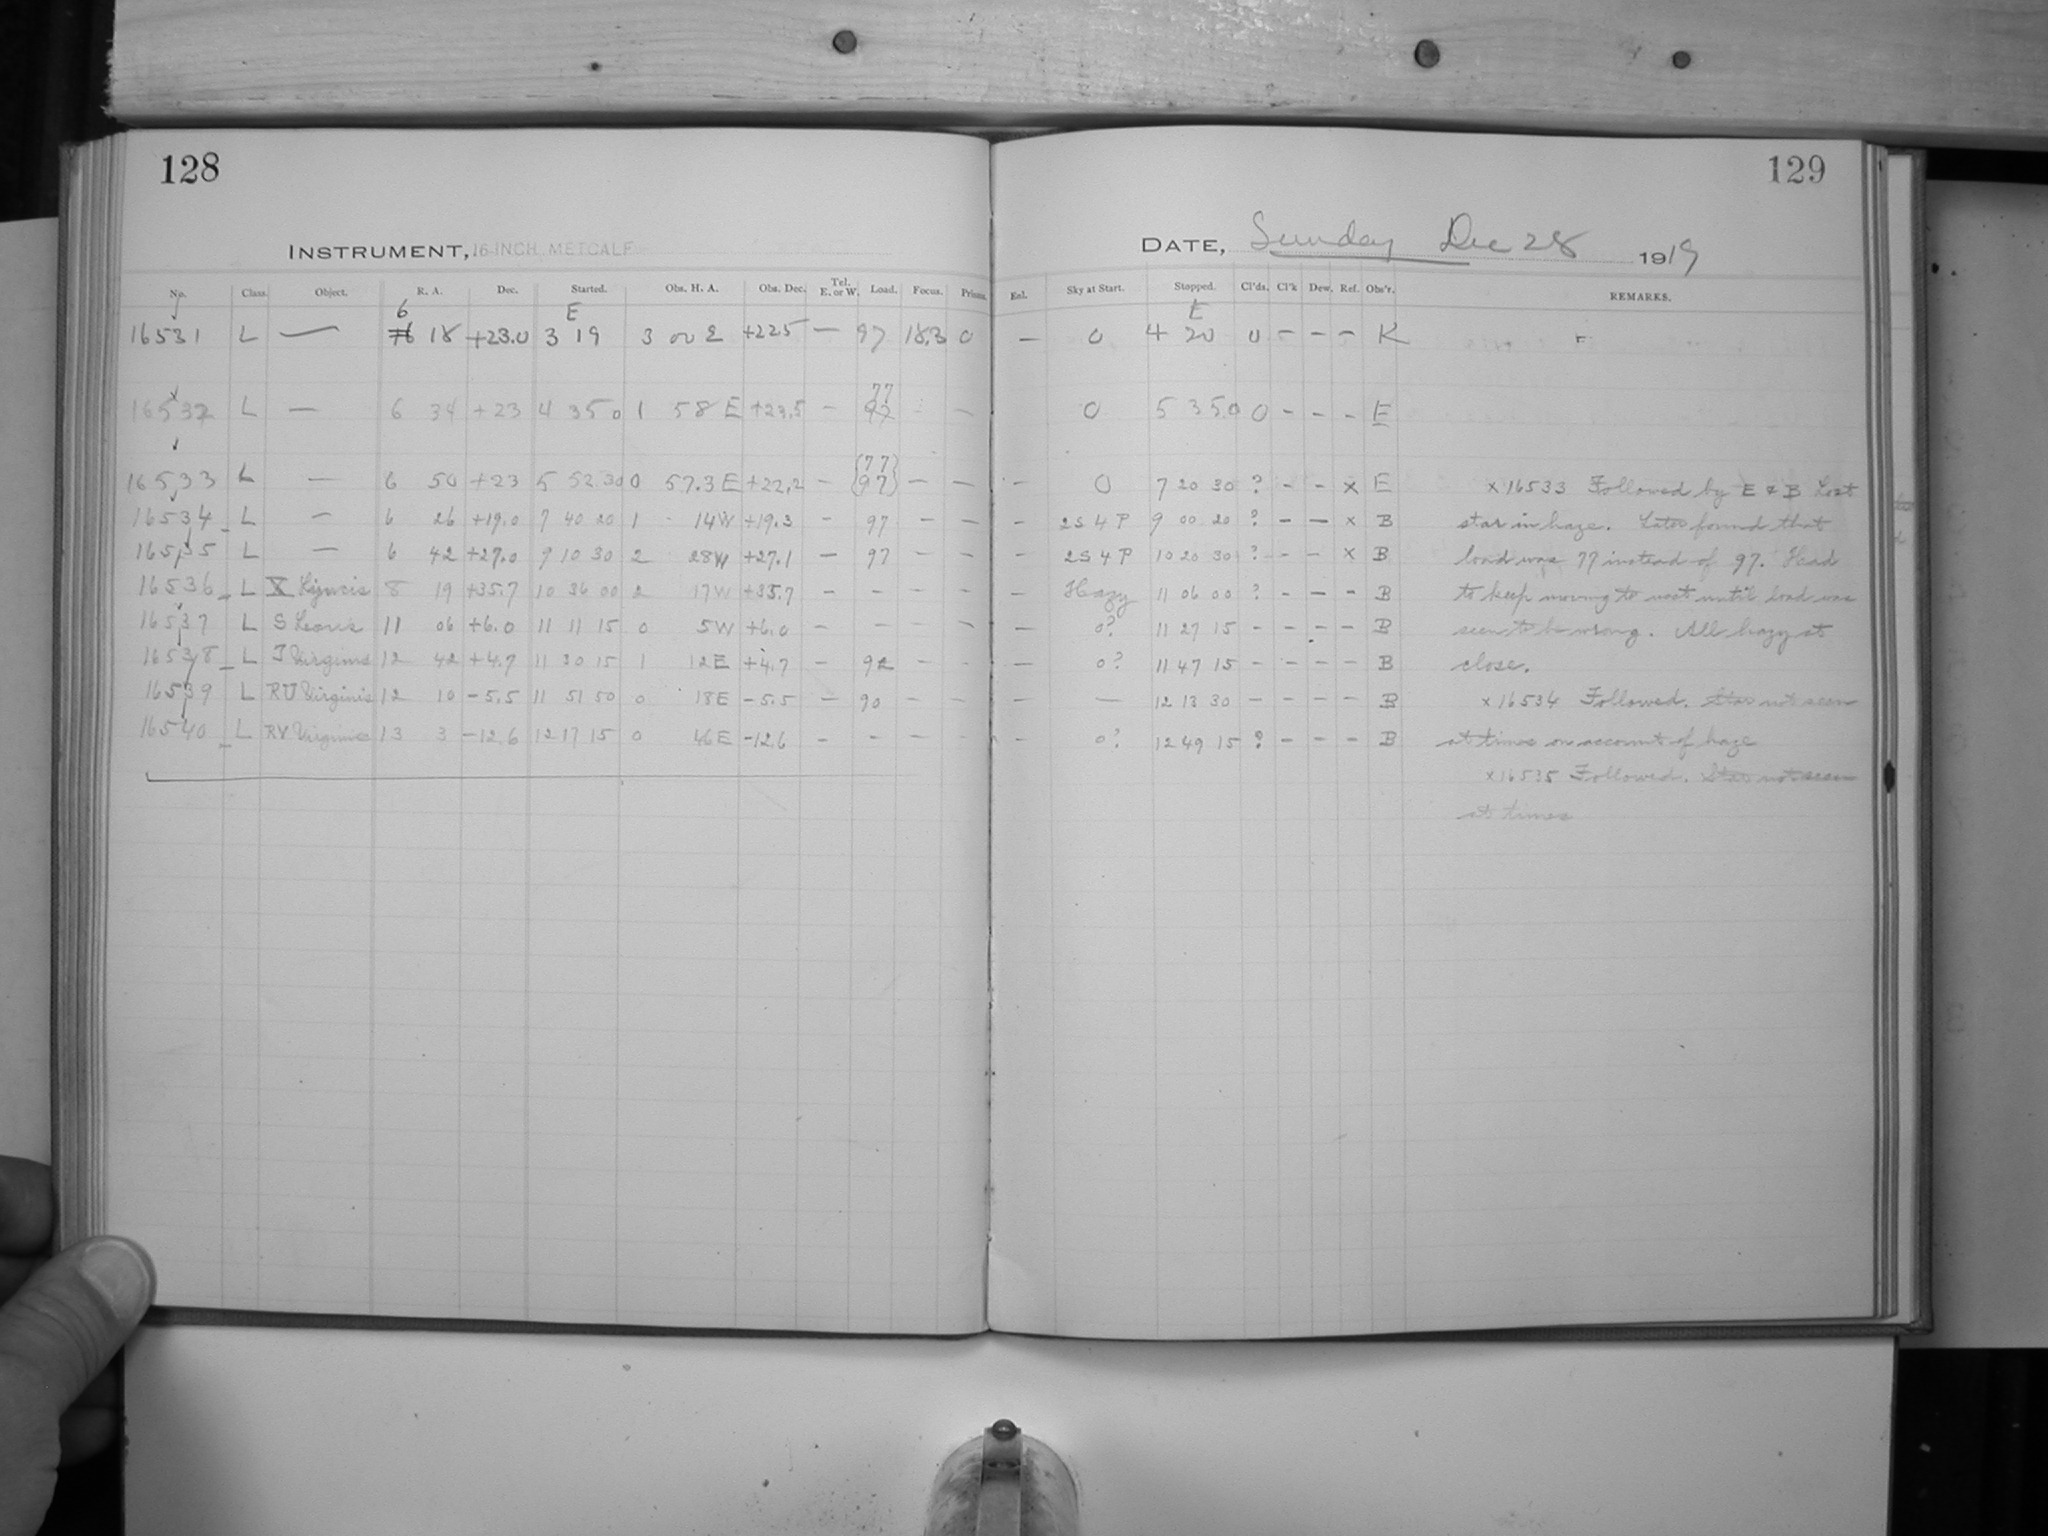 128
INSTRUMENT, 16-INCH METCALF
No. Class. Object. R. A. Dec. Started. Obs. H. A. Obs. Dec. Tel. E. or W. Load. Focus. Prisms.
6 E
16531 L — 18 +23.0 3 19 3 00 E +22.5 — 97 18.3 0
77
16532 L — 6 34 +23 4 35 0 1 58 E +23.5 - 97 - —
77
16533 L — 6 50 +23 5 52.30 0 57.3 E +22.2 - 97 — —
16534 L — 6 26 +19.0 7 40 20 1 14W +19.3 - 97 - —
16535 L — 6 42 +27.0 9 10 30 2 28W +27.1 — 97 - —
16536 L X Lyncis 8 19 +35.7 10 36 00 2 17W +35.7 - - - —
16537 L S Leonis 11 06 +6.0 11 11 15 0 5W +6.0 — - - —
16538 L Virginis 12 42 +4.7 11 30 15 1 12E +4.7 - 92 - —
16539 L RU Virginis 12 10 -5.5 11 51 50 0 18E -5.5 — 90 - —
16540 L RV Virginis 13 3 -12.6 12 17 15 0 46E -12.6 - - - —
129
DATE, Sunday Dec 28 1919
Enl. Sky at Start. Stopped. Cl'ds. Cl'k Dew. Ref. Obs'r. REMARKS.
E
— 0 4 20 0 - - - K
0 5 35 0 0 - - - E
- 0 7 20 30 ? - - x E x 16533 Followed by E & B Lost
- 2S 4P 9 00 20 ? - — x B star in haze. Later found that
- 2S 4P 10 20 30 ? - - x B load was 77 instead of 97. Had
- Hazy 11 06 00 ? - - - B to keep moving to west until load was
— 0? 11 27 15 - - - - B seen to be wrong. All hazy at
— 0? 11 47 15 - - - - B close.
— — 12 13 30 - - - - B x 16534 Followed. Star not seen
- 0? 12 49 15 ? - - - B at times on account of haze
x 16535 Followed. Star not seen
at times